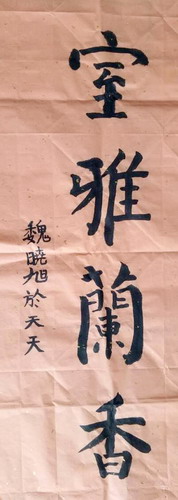 室雅蘭香
魏曉旭於天天